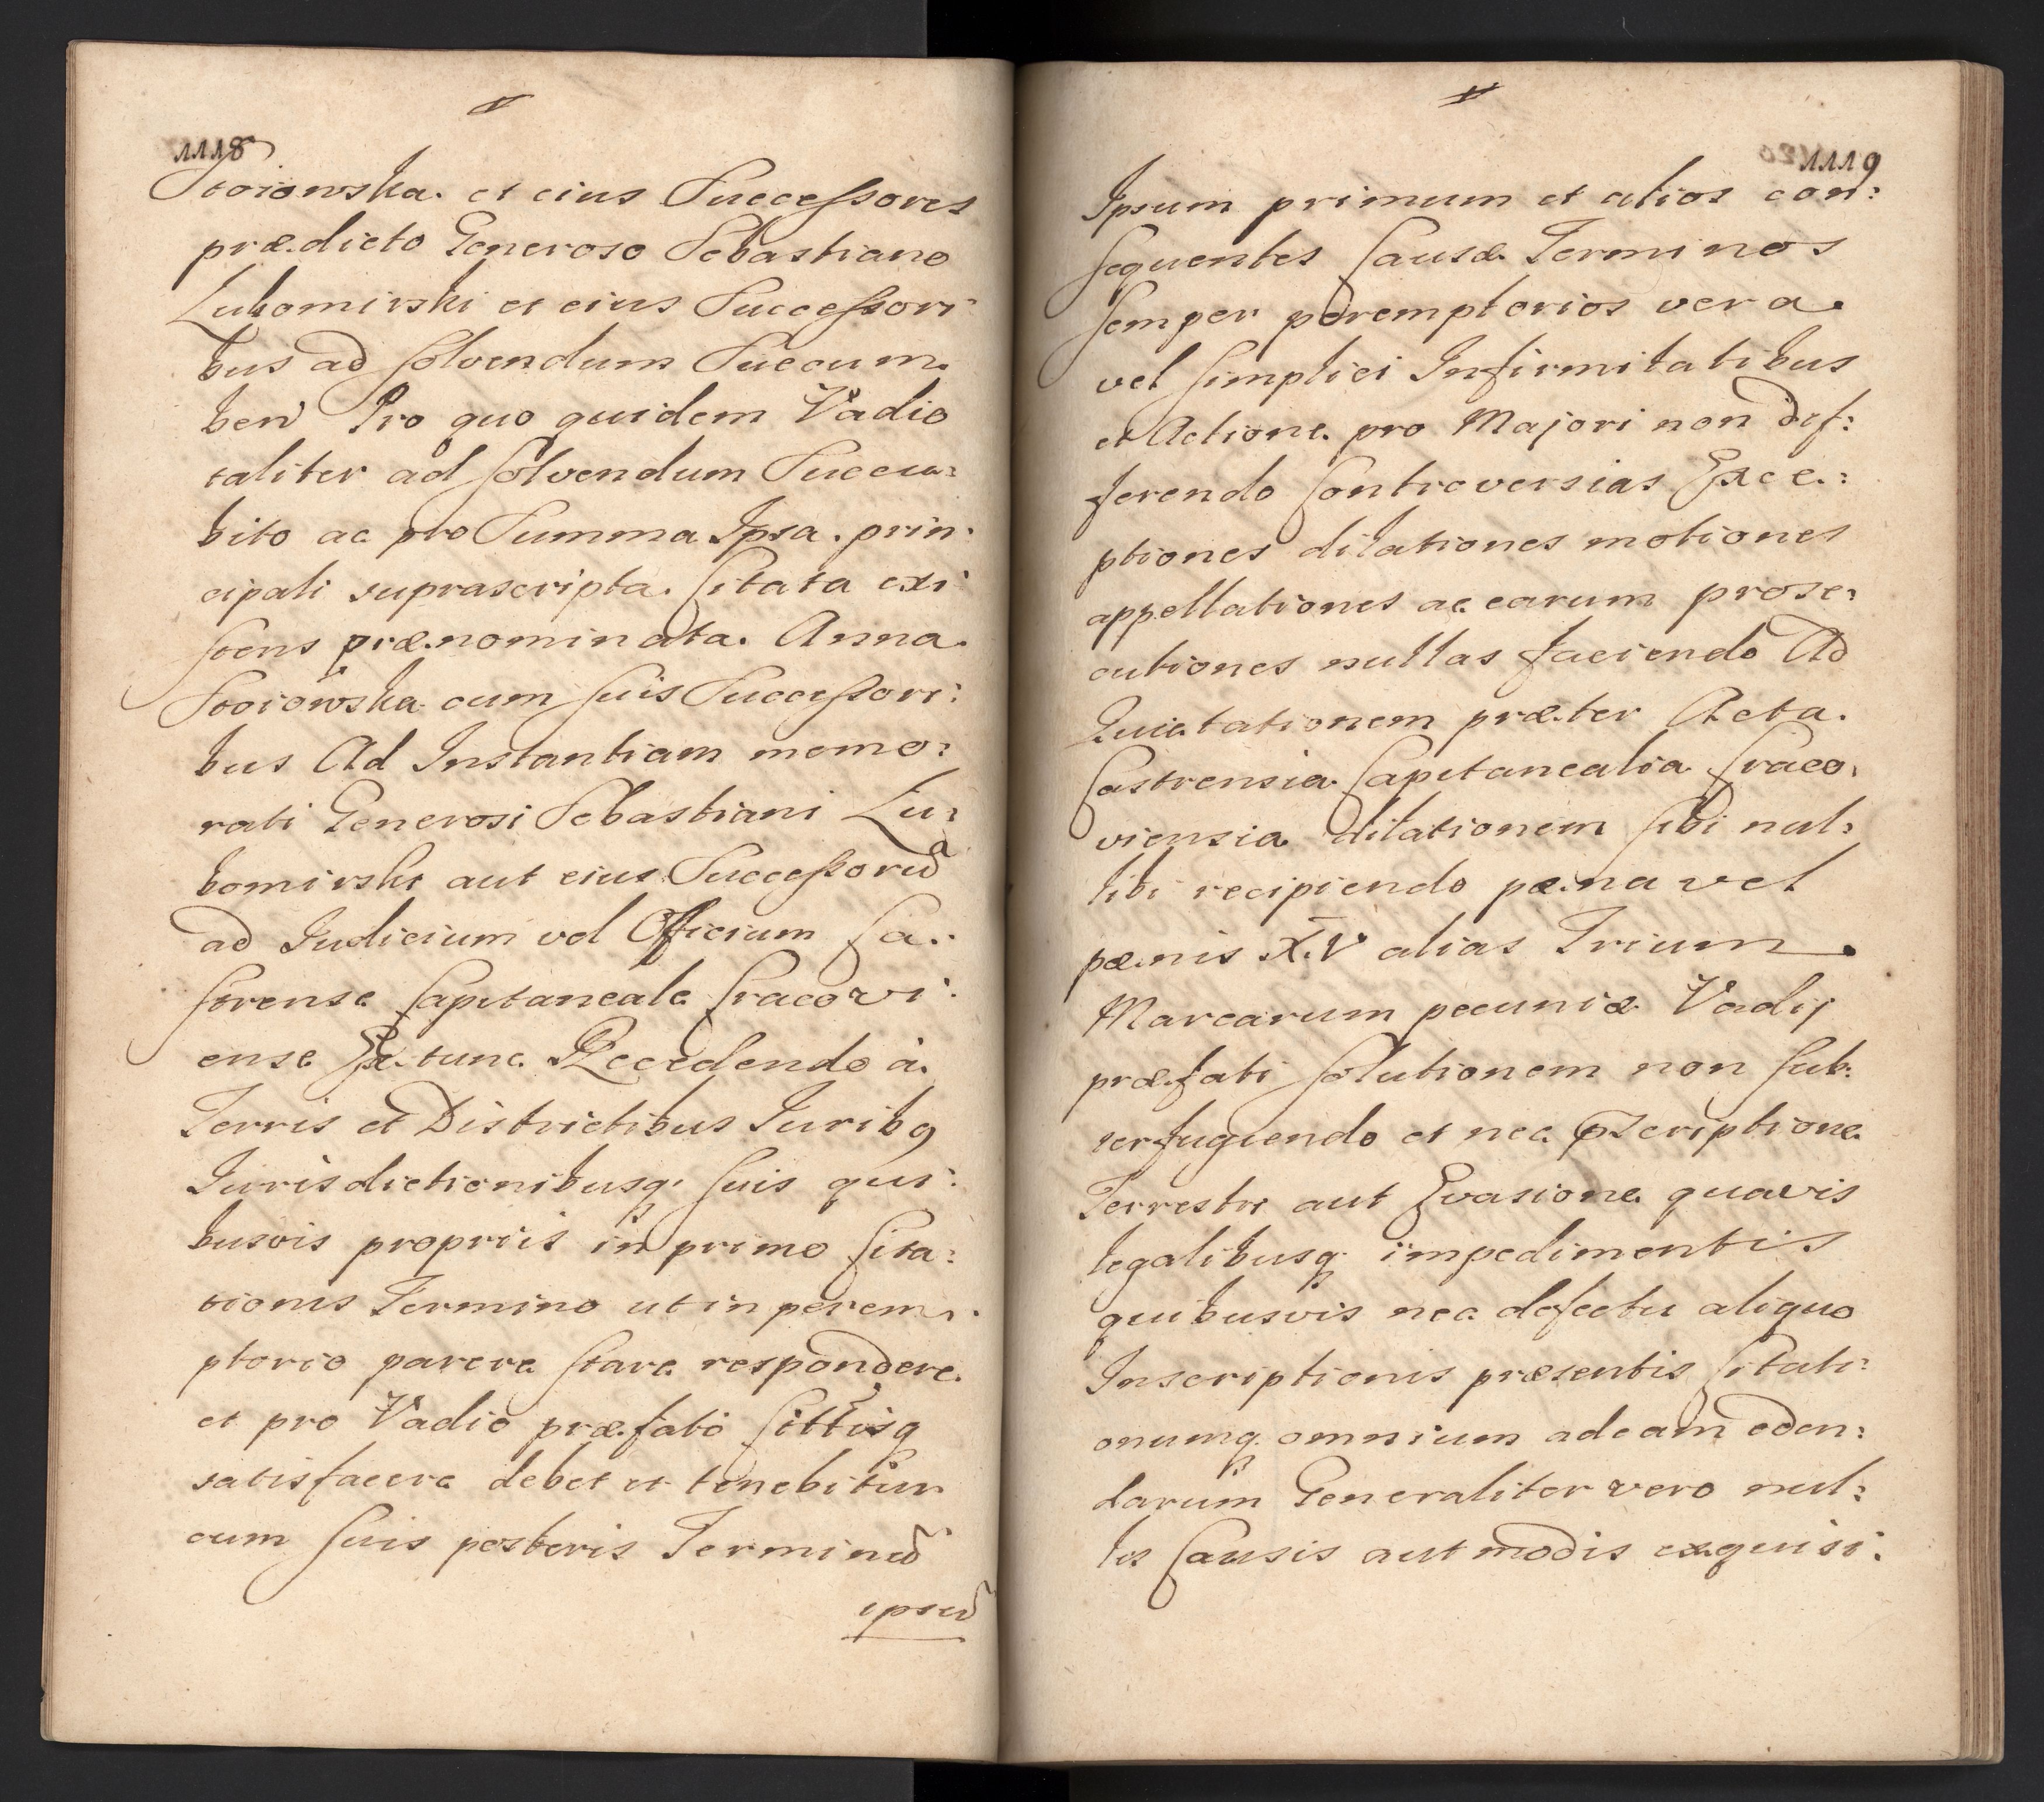 1118
Stoiowska et eius Successores
prædicto Generoso Sebastiano
Lubomirski et eius Successori
bus ad solvendum Succum
ben Pro quo quidem Vadio
taliter ad solvendum Succu:
bito ac pro Summa Ipsa prin:
cipali suprascripta Citata exi
stens prænominata Anna
Stoiowska cum suis Successori:
bus Ad Instantiam memo:
rati Generosi Sebastiani Lu:
bomirski aut eius Successorū
ad Iudicium vel Officium Ca:
strense Capitaneale Cracovi:
ense Ex tunc Recedendo à
Terris et Districtibus Iuribq
Iurisdictionibusq suis qui:
busvis propriis in primo Cita:
tionis Termino ut in perem:
ptorio parere stare respondere
et pro Vadio præfato Cittisq
satisfacere debet et tenebitur
cum suis posteris Terminū
ipsū
1119
Ipsum primum et alios con:
sequentes Causæ Terminos
semper peremptorios vera
vel simplici Infirmitatibus
et Actione pro Majori non dif:
ferendo Controversias Exce:
ptiones dilationes motiones
appellationes ac earum prose:
cutiones nullas faciendo Ad
Quietationem præter Acta
Castrensia Capitanealia Craco:
viensia dilationem sibi nul:
libi recipiendo pæna vel
pænis X.V alias Trium
Marcarum pecuniæ Vadij
præfati solutionem non sub:
terfugiendo et nec præscriptione
Terrestri aut Evasione quavis
legalibusq impedimentis
quibusvis nec defectu aliquo
Inscriptionis præsentis Citati:
onumq omnium ad eam eden:
darum Generaliter vero nul:
lis Causis aut modis exquisi: